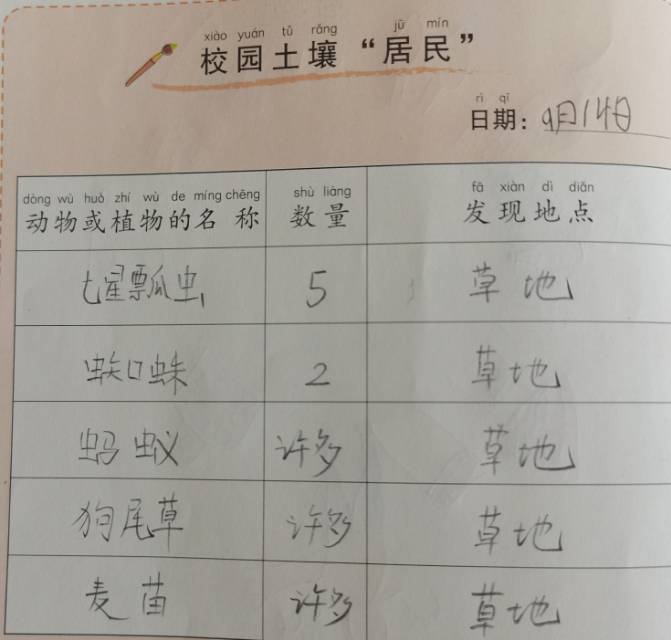 xiào yuán tǔ rǎng jū mín
校园土壤“居民”
rì qī
日期：9月14日
dòng wù huò zhí wù de míng chēng shù liàng fā xiàn dì diǎn
动物或植物的名称 数量 发现地点
七星瓢虫 5 草地
蜘蛛 2 草地
蚂蚁 许多 草地
狗尾草 许多 草地
麦苗 许多 草地